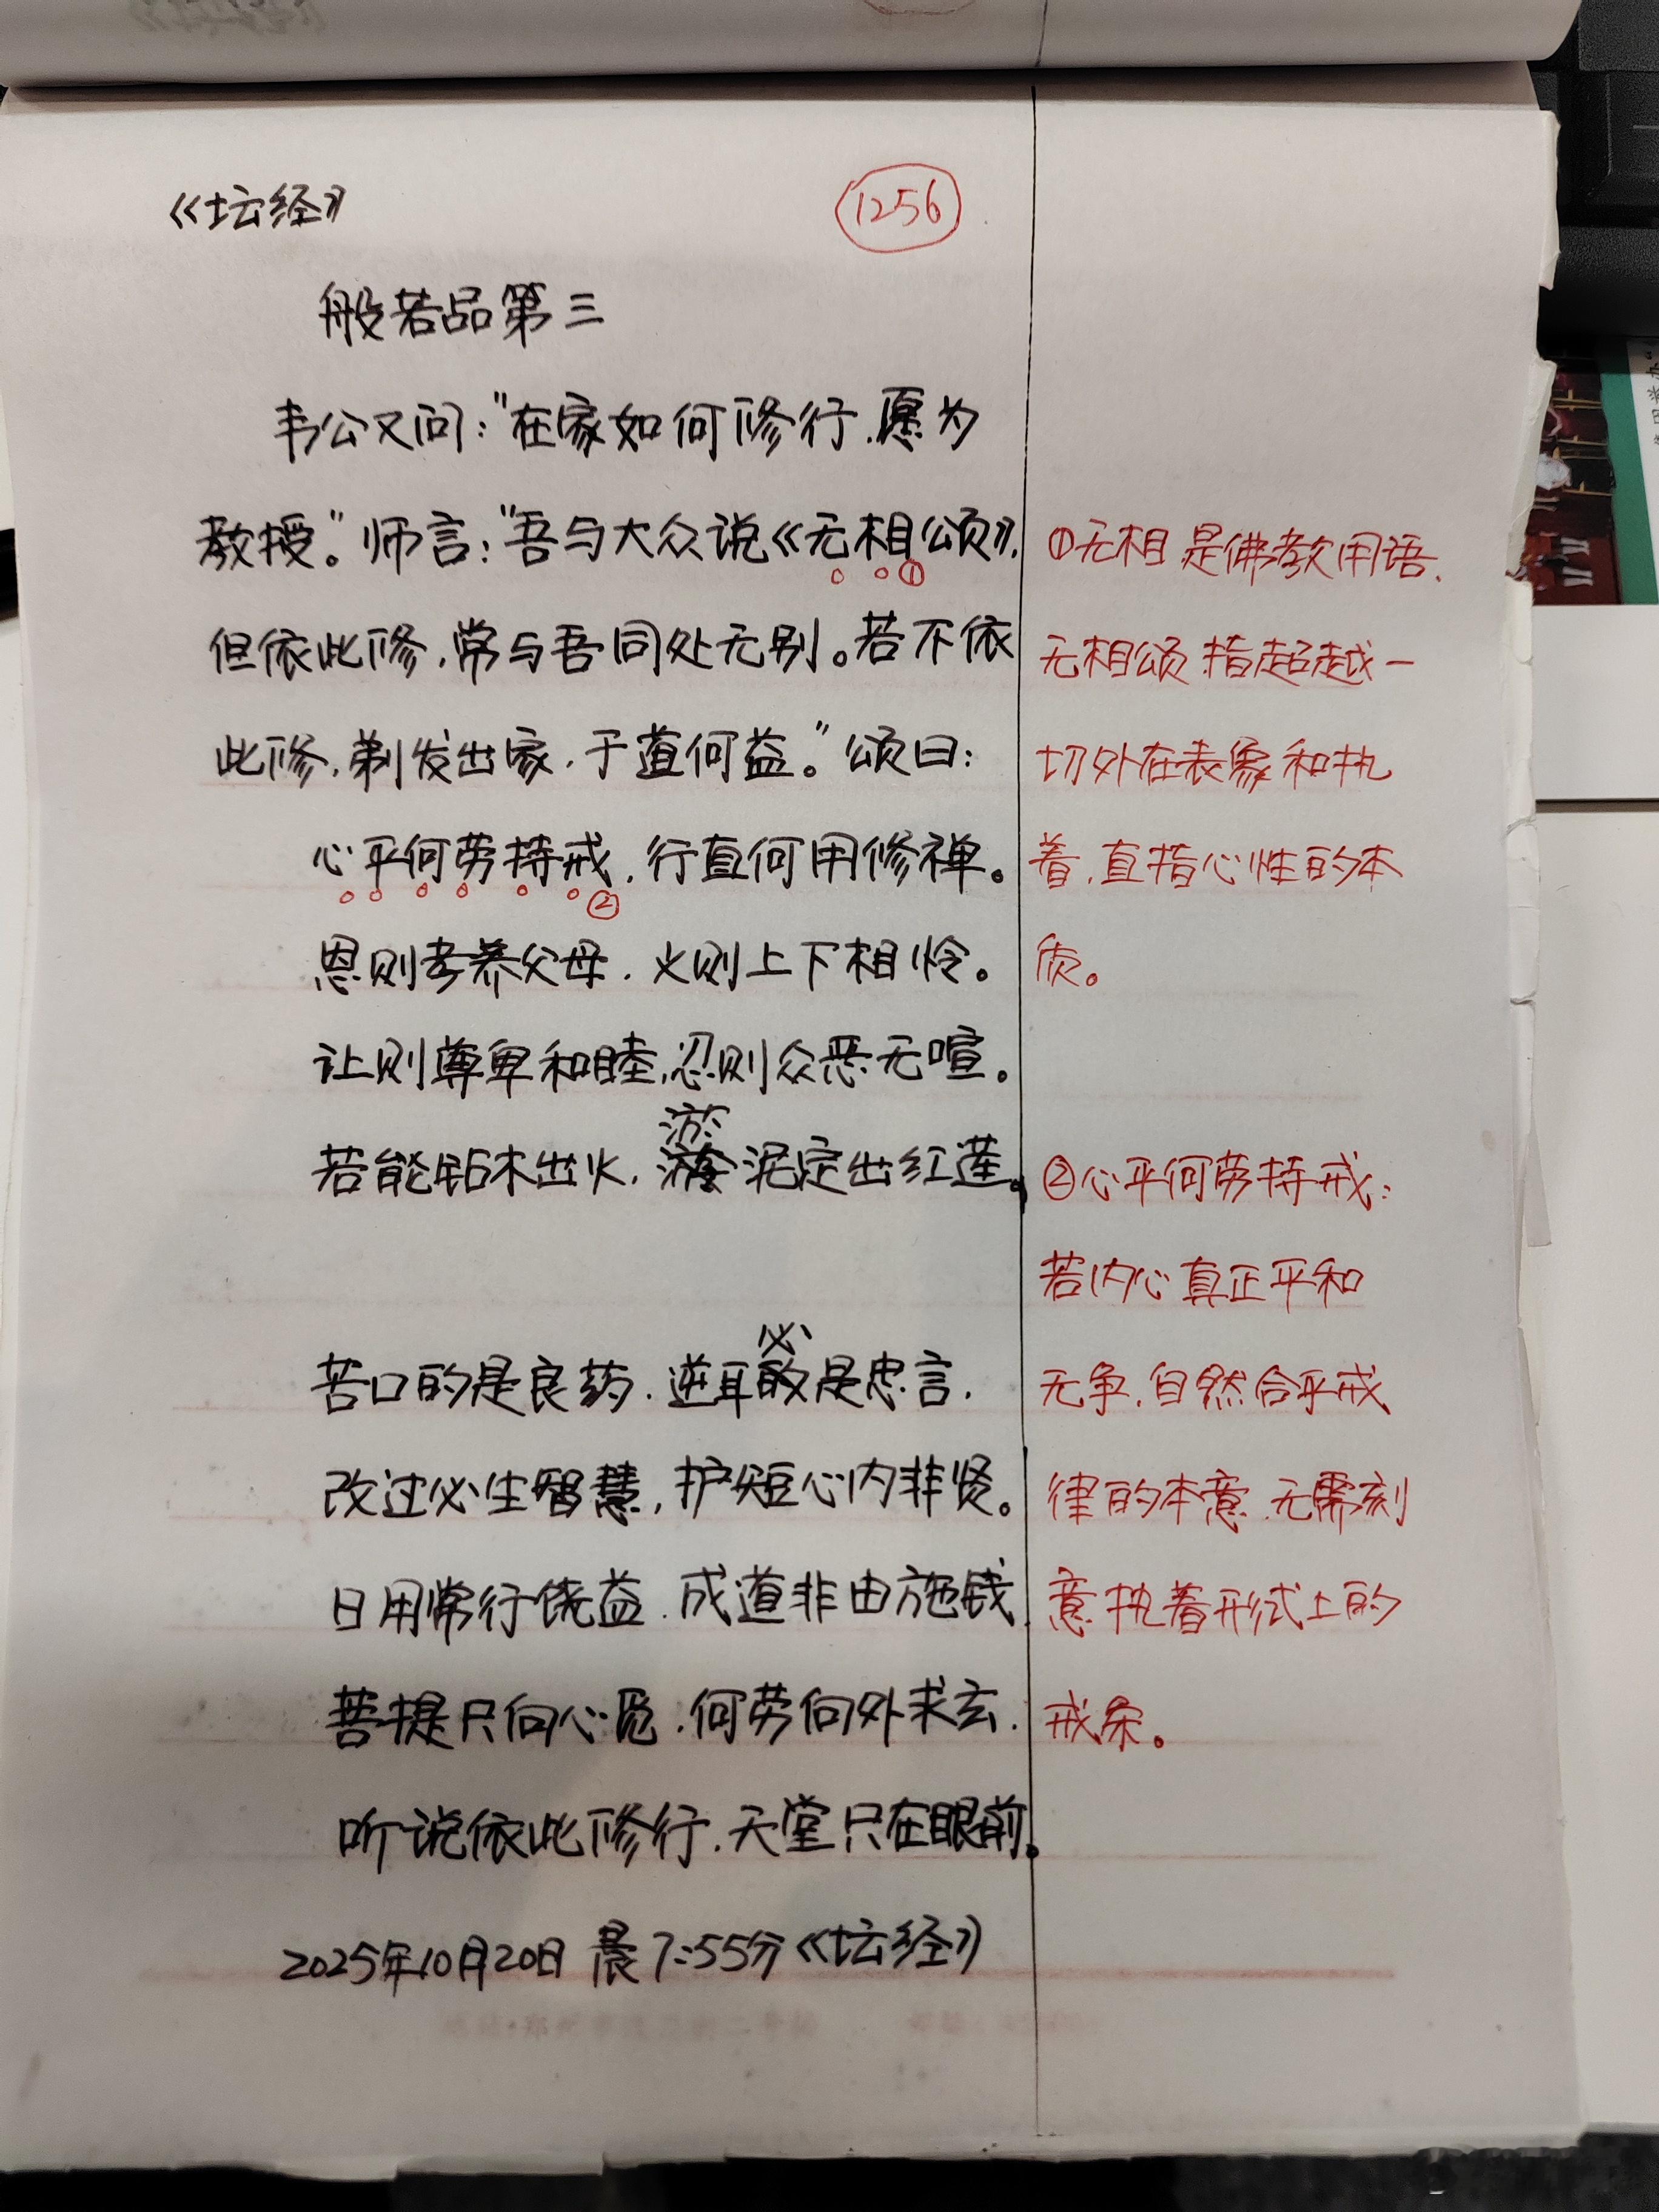 《坛经》
1256
般若品第三
韦公又问："在家如何修行.愿为
教授。"师言："吾与大众说《无相颂》.
①
但依此修.常与吾同处无别。若不依
此修.剃发出家.于道何益。"颂曰：
心平何劳持戒.行直何用修禅。
②
恩则孝养父母.义则上下相怜。
让则尊卑和睦.忍则众恶无喧。
淤
若能钻木出火.泥定出红莲。
必
苦口的是良药.逆耳是忠言.
改过必生智慧,护短心内非贤。
日用常行饶益.成道非由施钱.
菩提只向心觅.何劳向外求玄.
听说依此修行.天堂只在眼前。
2025年10月20日 晨7:55分《坛经》
①无相 是佛教用语.
无相颂 指超越一
切外在表象和执
着.直指心性的本
质。
②心平何劳持戒：
若内心真正平和
无争.自然合乎戒
律的本意.无需刻
意执着形式上的
戒条。